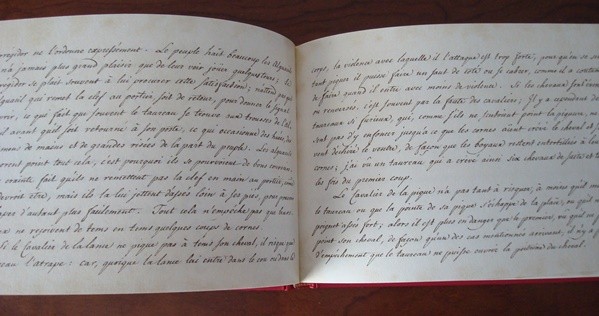 ne l'ordonne expressément. Le peuple hait beaucoup les Alguazils
n'a jamais plus grand plaisir que de leur voir jouer quelque tour; le
se plait souvent à lui procurer cette satisfaction;
qui remet la clef au portier soit de retour, pour donner le signal
ce qui fait que souvent le taureau se trouve aux trousses de l'Al
avant qu'il soit retourné à son poste, ce qui occasionne des
de masse et de grandes risées de la part du peuple. Les alguazils
point tout cela, c'est pourquoi ils se pourvoient de bons
crainte fait qu'ils ne remettent pas la clef en main au portier, comme
être, mais ils la lui jettent d'assés loin à ses pies, pour
d'autant plus facilement. Tout cela n'empêche pas que
ne reçoivent de tems en tems quelques coups de cornes.
Si le Cavalier de la lance ne pique pas à tems son cheval, il risque que
l'attrape: car, quoique la lance lui entre dans le cou ou dans le
corps, la violence avec laquelle il l'attaque est trop forte, pour qu'en se
piquer il puisse faire un saut de côté ou se cabrer, comme il a coutume
de faire quand il entre avec moins de violence. Si les chevaux sont
ou renversés, c'est souvent par la faute des cavaliers; Il y a cependant des
taureaux si furieux, qui, comme s'ils ne sentoient point la piqueure, ne
sont pas d'y enfoncer jusqu'à ce que les cornes aient crevé le cheval et
déchiré le ventre, de façon que les boyaux restent entortillés à leurs
cornes; j'ai vu un taureau qui a crevé ainsi six chevaux de suite et
les fois du premier coup.
Le Cavalier de la pique n'a pas tant à risquer, à moins qu'il
le taureau ou que la pointe de sa pique s'échappe de la plaie, ou qu'il
poignet assés fort; alors il est plus en danger que le premier, en qu'il ne
point son cheval, de façon qu'un des cas mentionnés arrivant, il n'y a
d'empêchement que le taureau ne puisse ouvrir la poitrine du cheval.